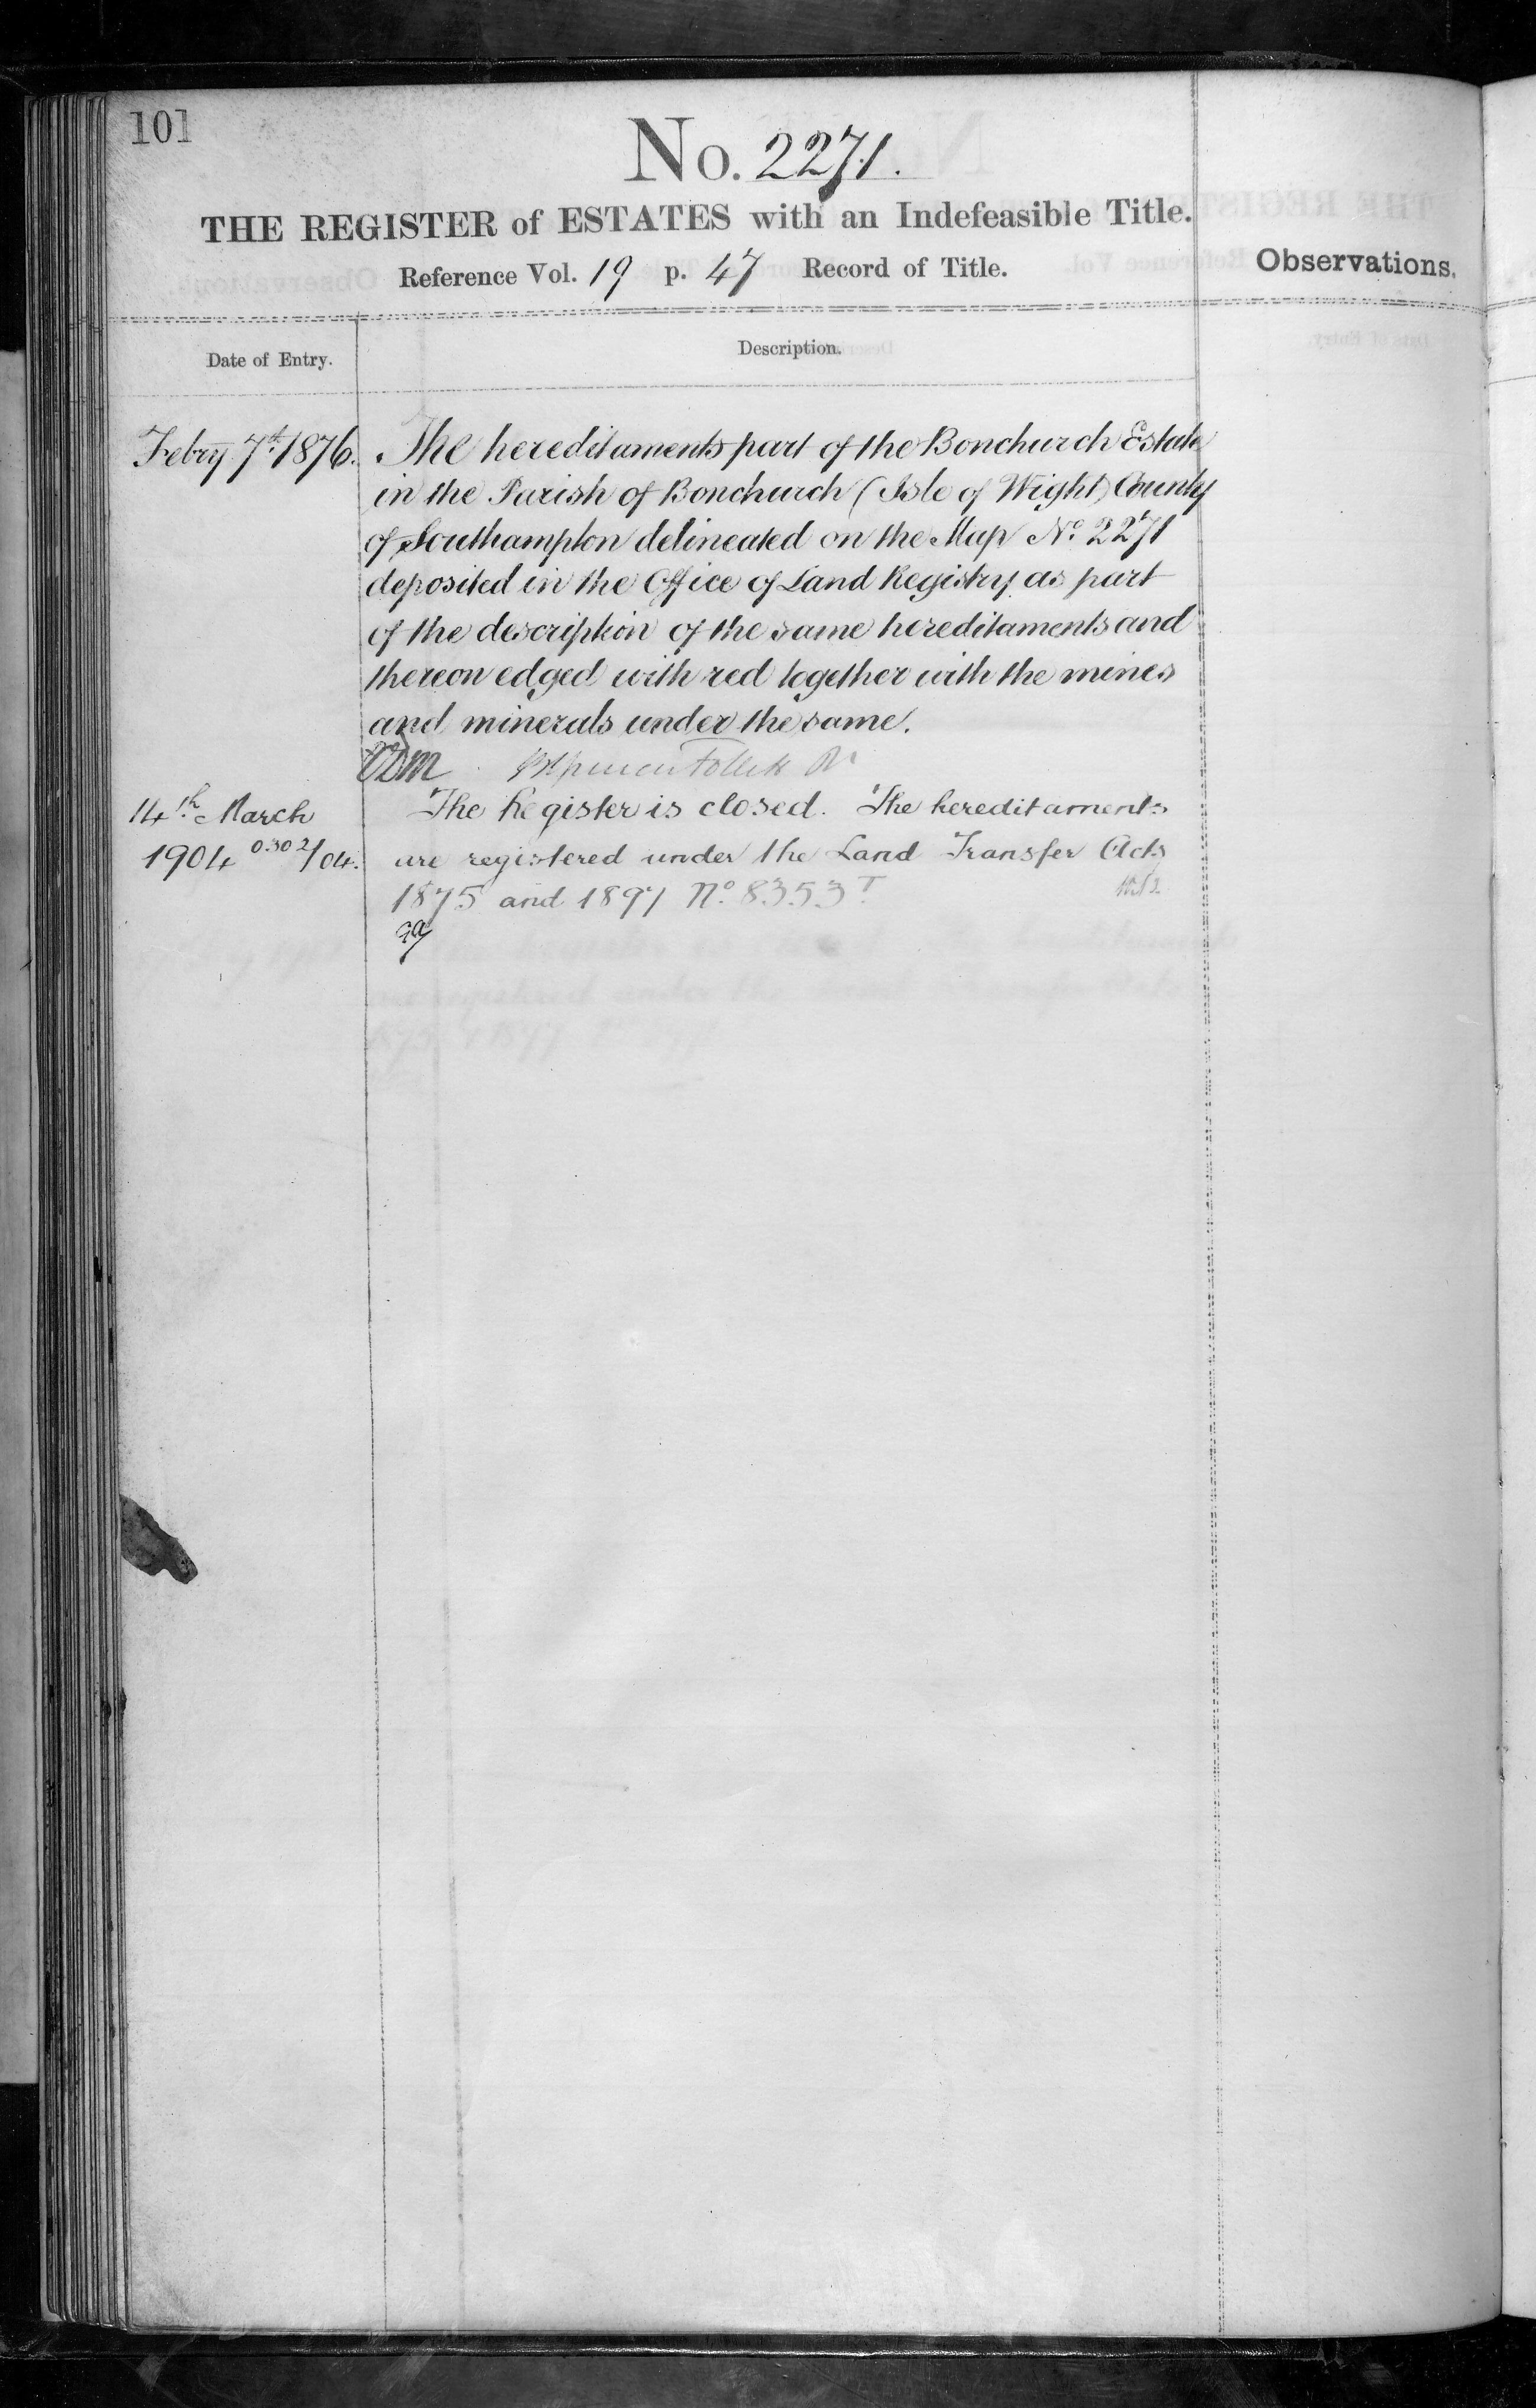 101
No. 2271.
THE REGISTER of ESTATES with an Indefeasible Title.
Reference Vol. 19 p. 47 Record of Title.
Observations.
Date of Entry.
Description.
Febry 7th 1876. The hereditaments part of the Bonchurch Estate
in the Parish of Bonchurch (Isle of Wight) County
of Southampton delineated on the Map No. 2271
deposited in the Office of Land Registry as part
of the description of the same hereditaments and
thereon edged with red together with the mines
and minerals under the same.
Follett
14th March The Register is closed. The hereditaments
1904 0302/04. are registered under the Land Transfer Acts
1875 and 1897 No. 8353 T